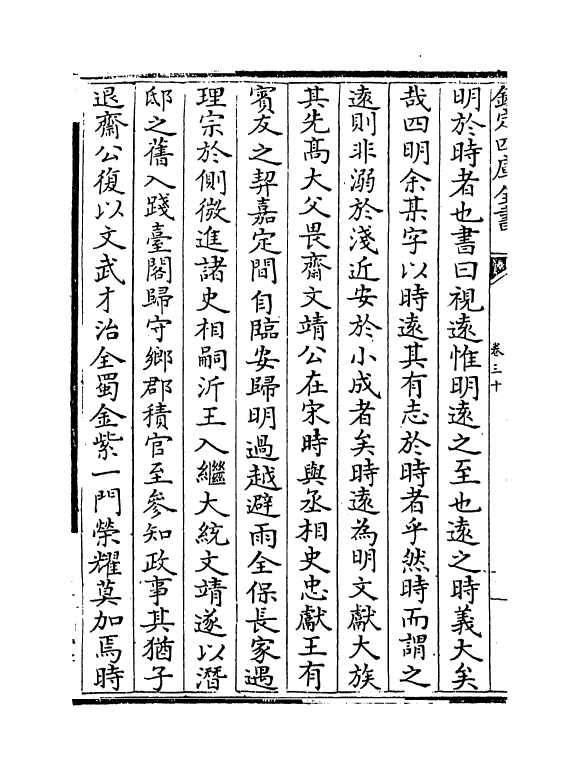 欽定四庫全書
卷三十
明於時者也書曰視遠惟明遠之至也遠之時義大矣
哉四明余某字以時遠其有志於時者乎然時而謂之
遠則非溺於淺近安於小成者矣時遠為明文獻大族
其先髙大父畏齋文靖公在宋時與丞相史忠獻王有
賓友之契嘉定間自臨安歸明過越避雨全保長家遇
理宗於側微進諸史相嗣沂王入繼大統文靖遂以潛
邸之舊入踐臺閣歸守鄉郡積官至參知政事其猶子
退齋公復以文武才治全蜀金紫一門榮耀莫加焉時